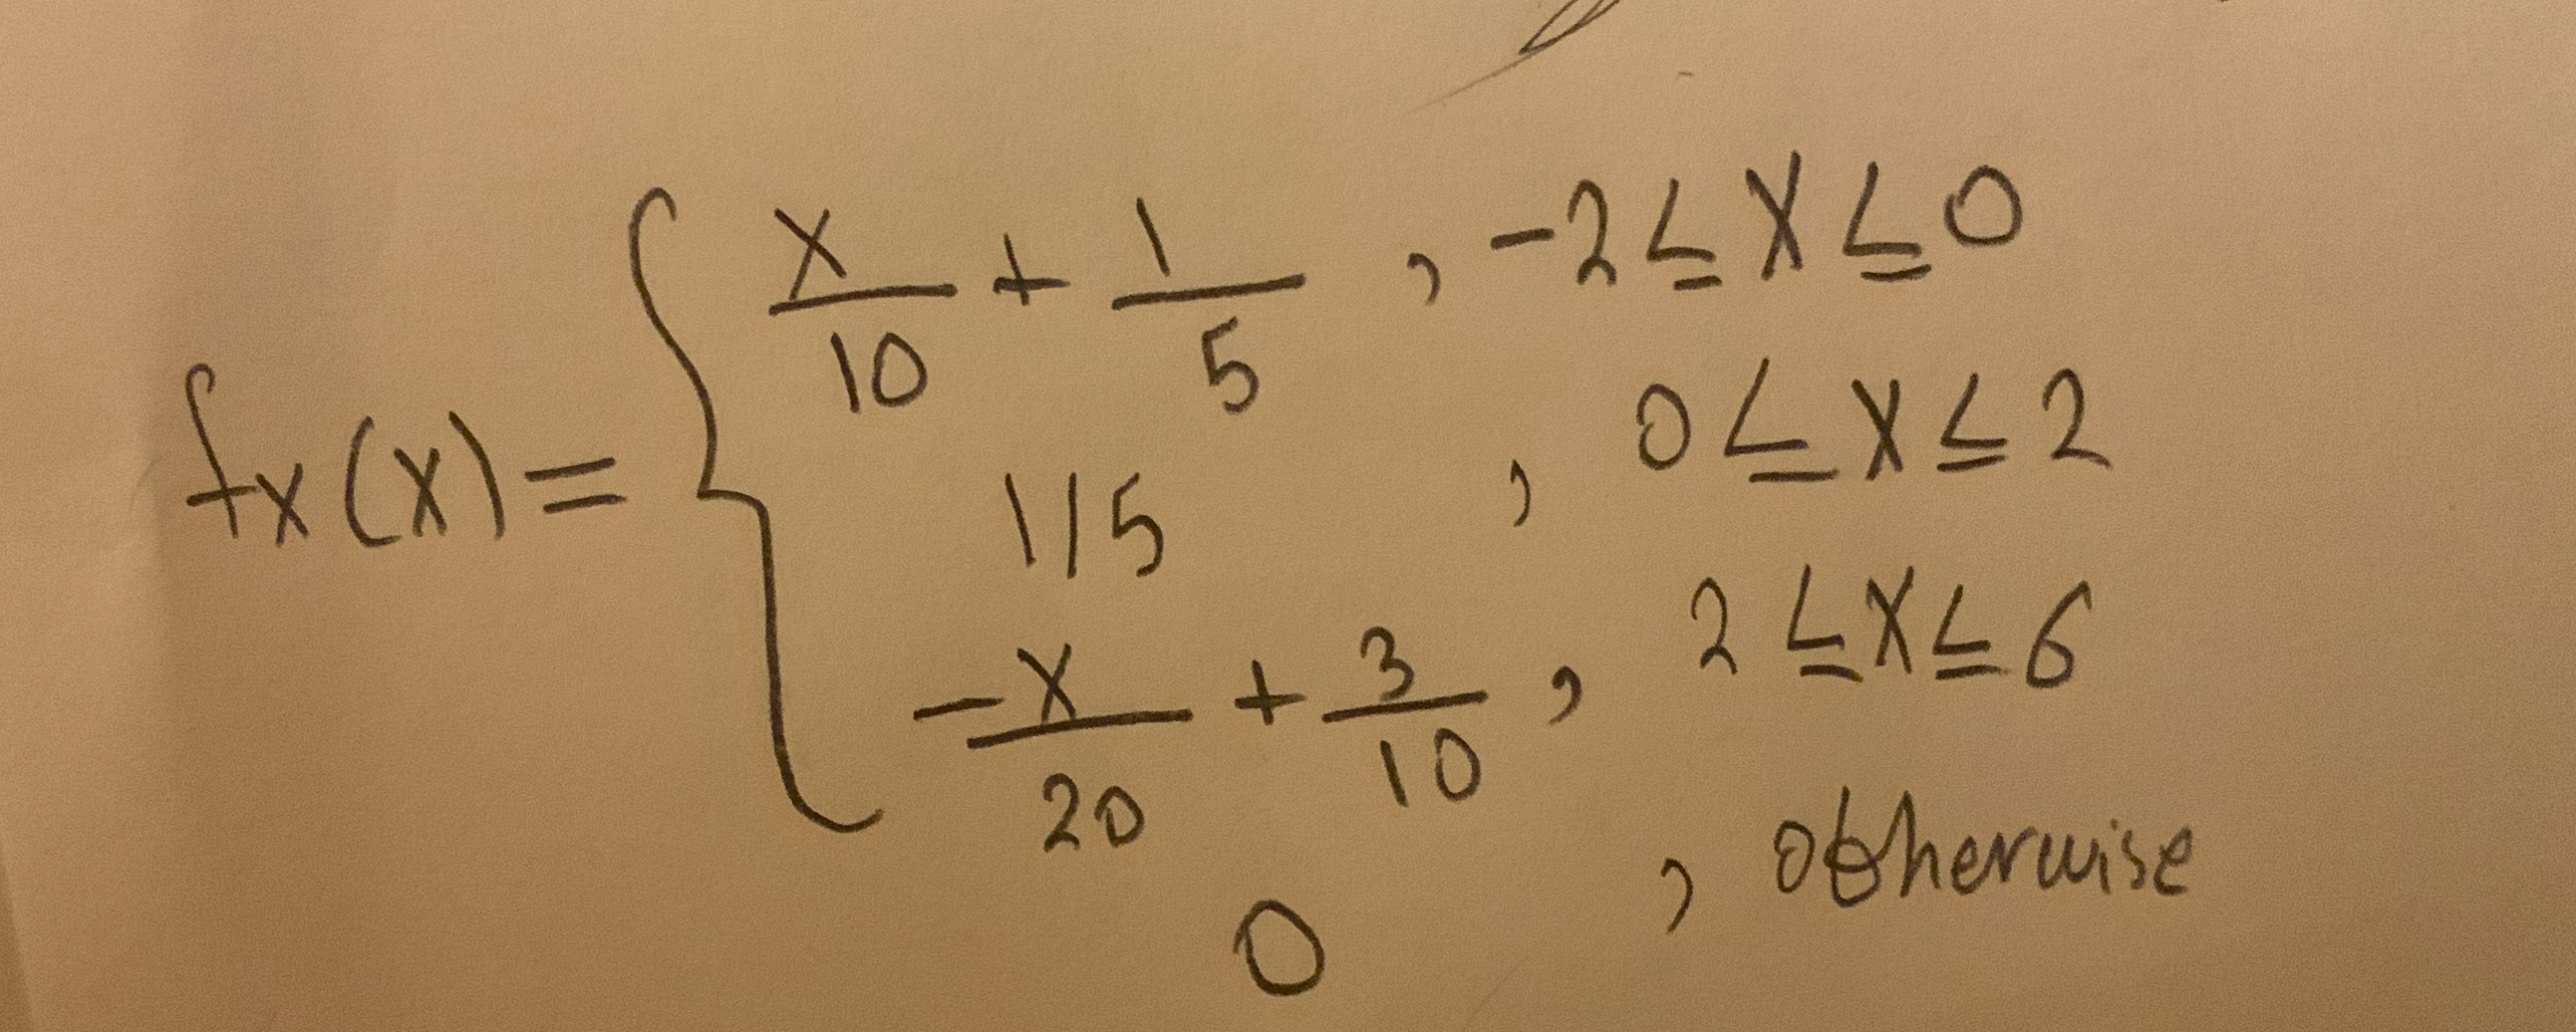 fx(x) = { x/10 + 1/5 , -2 ≤ x ≤ 0
1/5 , 0 ≤ x ≤ 2
-x/20 + 3/10 , 2 ≤ x ≤ 6
0 , otherwise